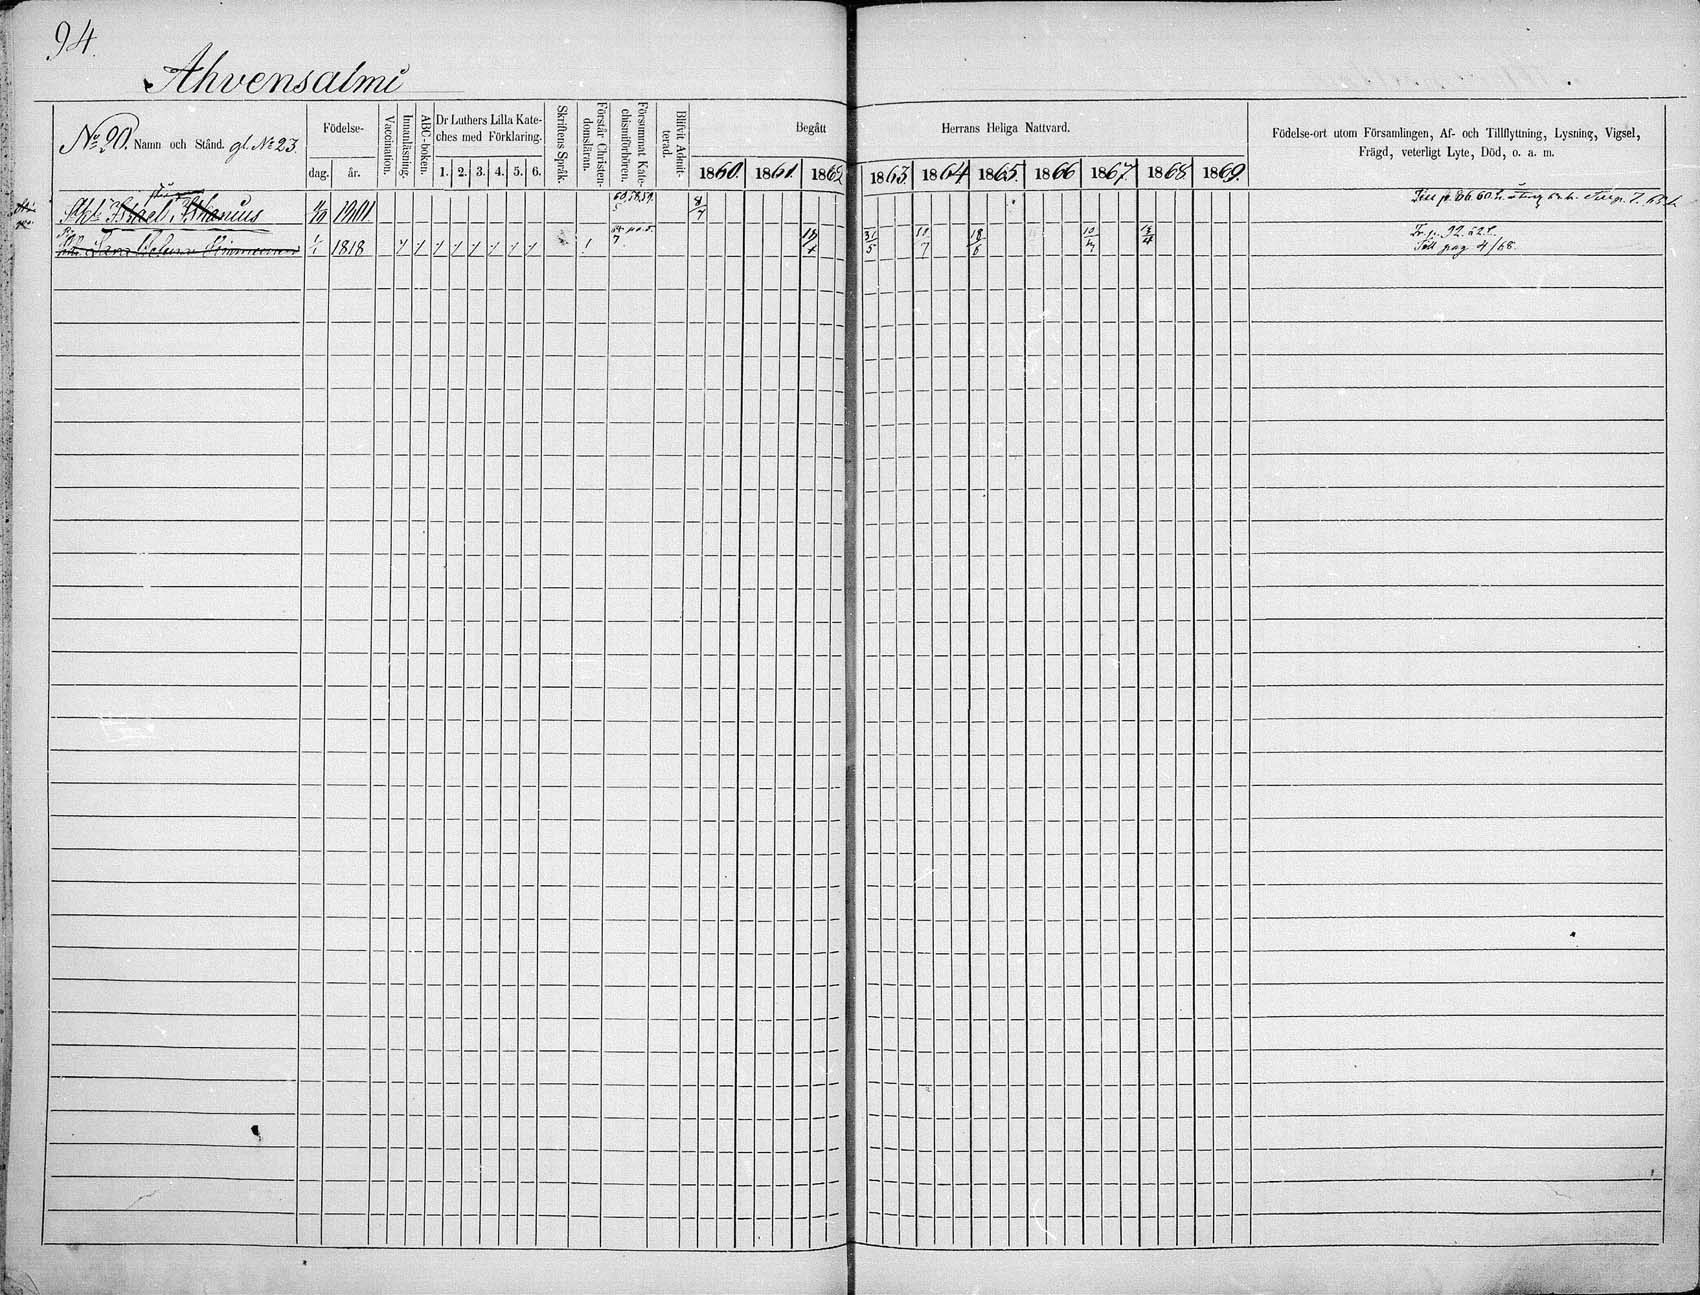 94.
Ahvensalmi
No 20. Namn och Stånd. gl. No 23.
Födelse-
dag.
år.
Vaccination.
Innanläsning.
ABC-boken.
Dr Luthers Lilla Kate-
ches med Förklaring.
1. 2. 3. 4. 5. 6.
Skriftens Språk.
Förstår Christen-
domsläran.
Försummat Kate-
chismiförhören.
Blifvit Admit-
terad.
Begått Herrans Heliga Nattvard.
1860. 1861. 1862. 1863. 1864. 1865. 1866 1867. 1868 1869.
Födelse-ort utom Församlingen, Af- och Tillflyttning, Lysning, Vigsel,
Frägd, veterligt Lyte, Död, o. a. m.
60.58.59.
5
8/7
1/1 1818
7
31/5 11/7 18/6
Fr. p. 92. 62.
Till pag 4/68.